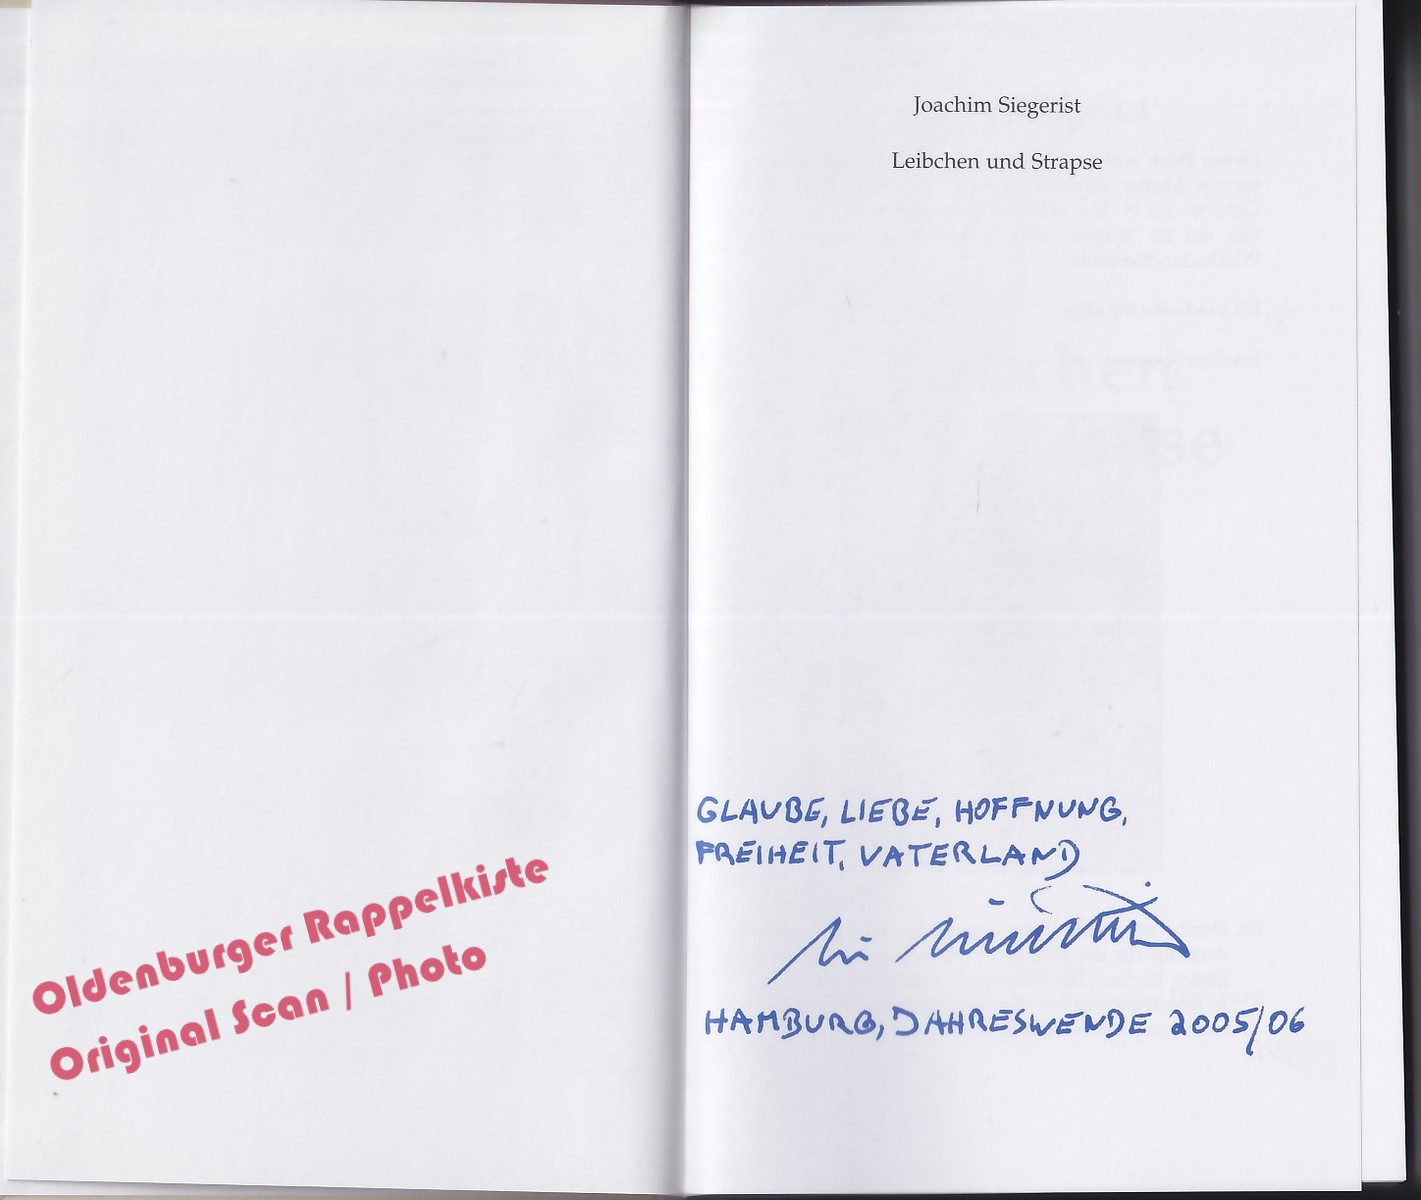 Joachim Siegerist
Leibchen und Strapse
GLAUBE, LIEBE, HOFFNUNG,
FREIHEIT, VATERLAND
HAMBURG, JAHRESWENDE 2005/06
Oldenburger Rappelkiste
Original Scan / Photo